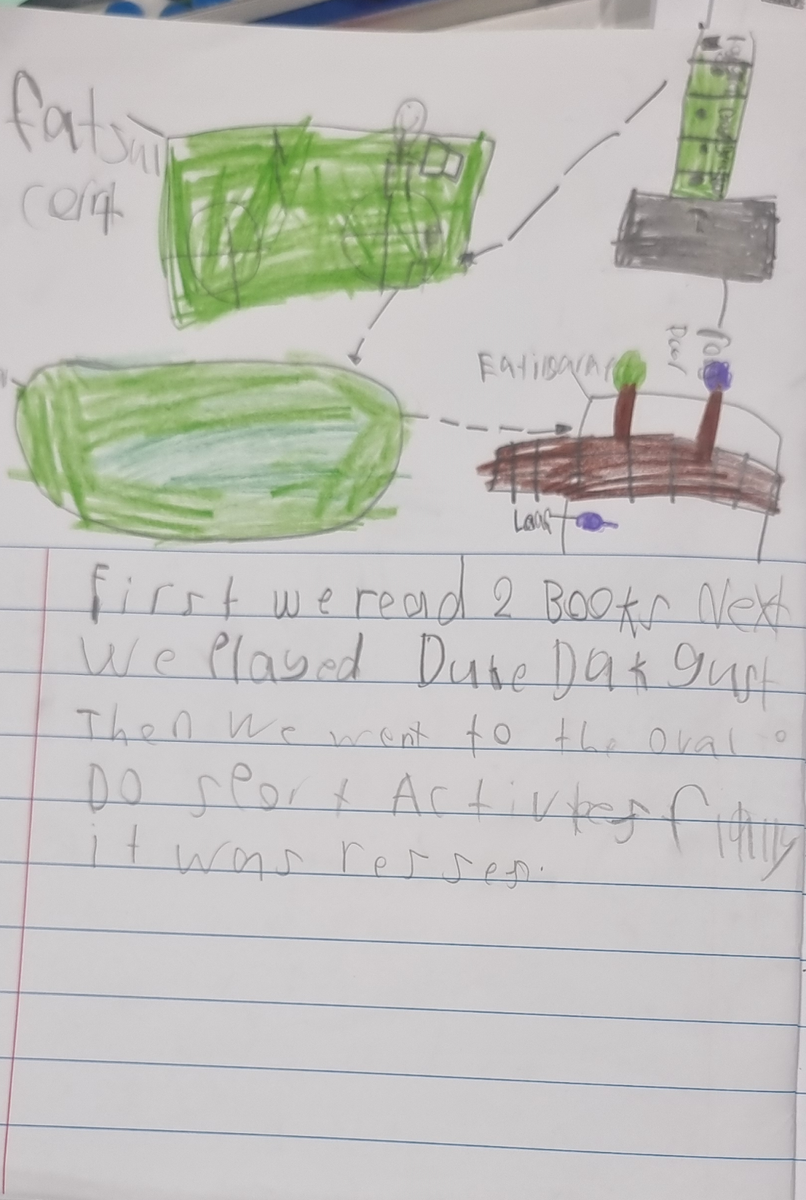 fatsul
cort
Eatingarar
Loog
First we read 2 Books Next
We Played Duke Dak gust
Then We went to the oval
Do sport Activtes finally
it was resses.